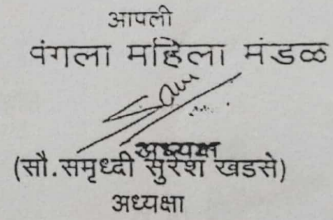 आपली
पंगला महिला मंडळ
अध्यक्ष
(सौ.समृध्दी सुरेश खडसे)
अध्यक्षा